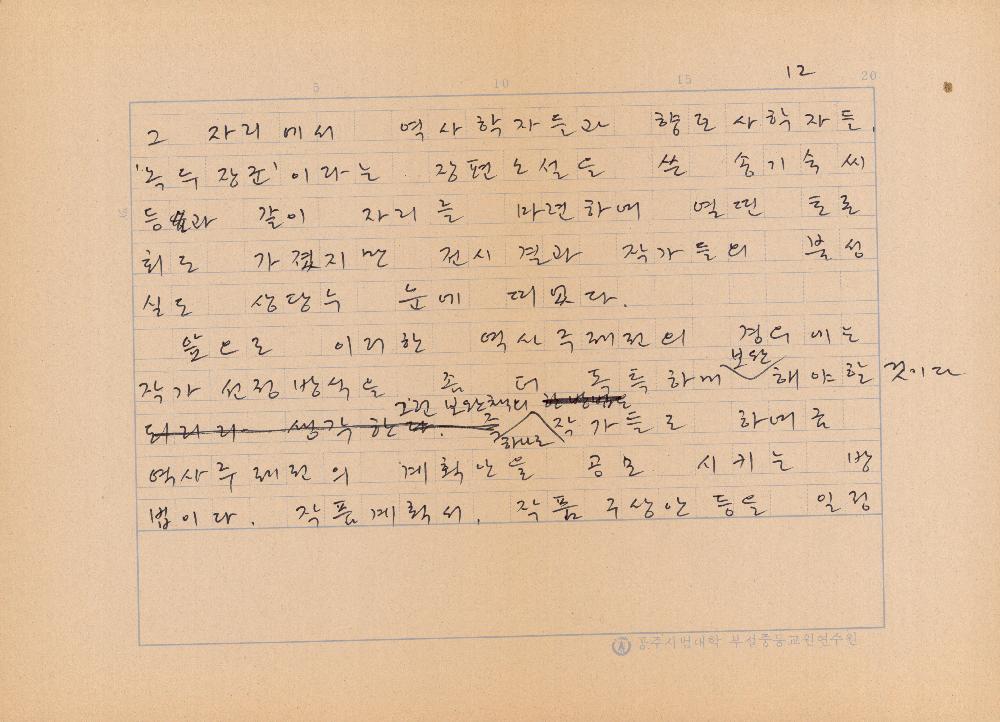 5 10 15 20
12
그 자리에서 역사학자들과 향토사학자들,
'녹두장군'이라는 장편소설을 쓴 송기숙씨
등과 같이 자리를 마련하여 열띤 토론
회도 가졌지만 전시 결과 작가들의 불성
실도 상당수 눈에 띄었다.
앞으로 이러한 역사주제전의 경우에는
보완
작가 선정 방식을 좀 더 독특하게 해야할 것이다
그런 보완책의 한 방법을
되리라 생각한다. 즉 작가들로 하여금
하나로
역사주제전의 계획안을 공모 시키는 방
법이다. 작품계획서, 작품 구상안 등을 일정
공주사범대학 부설중등교원연수원